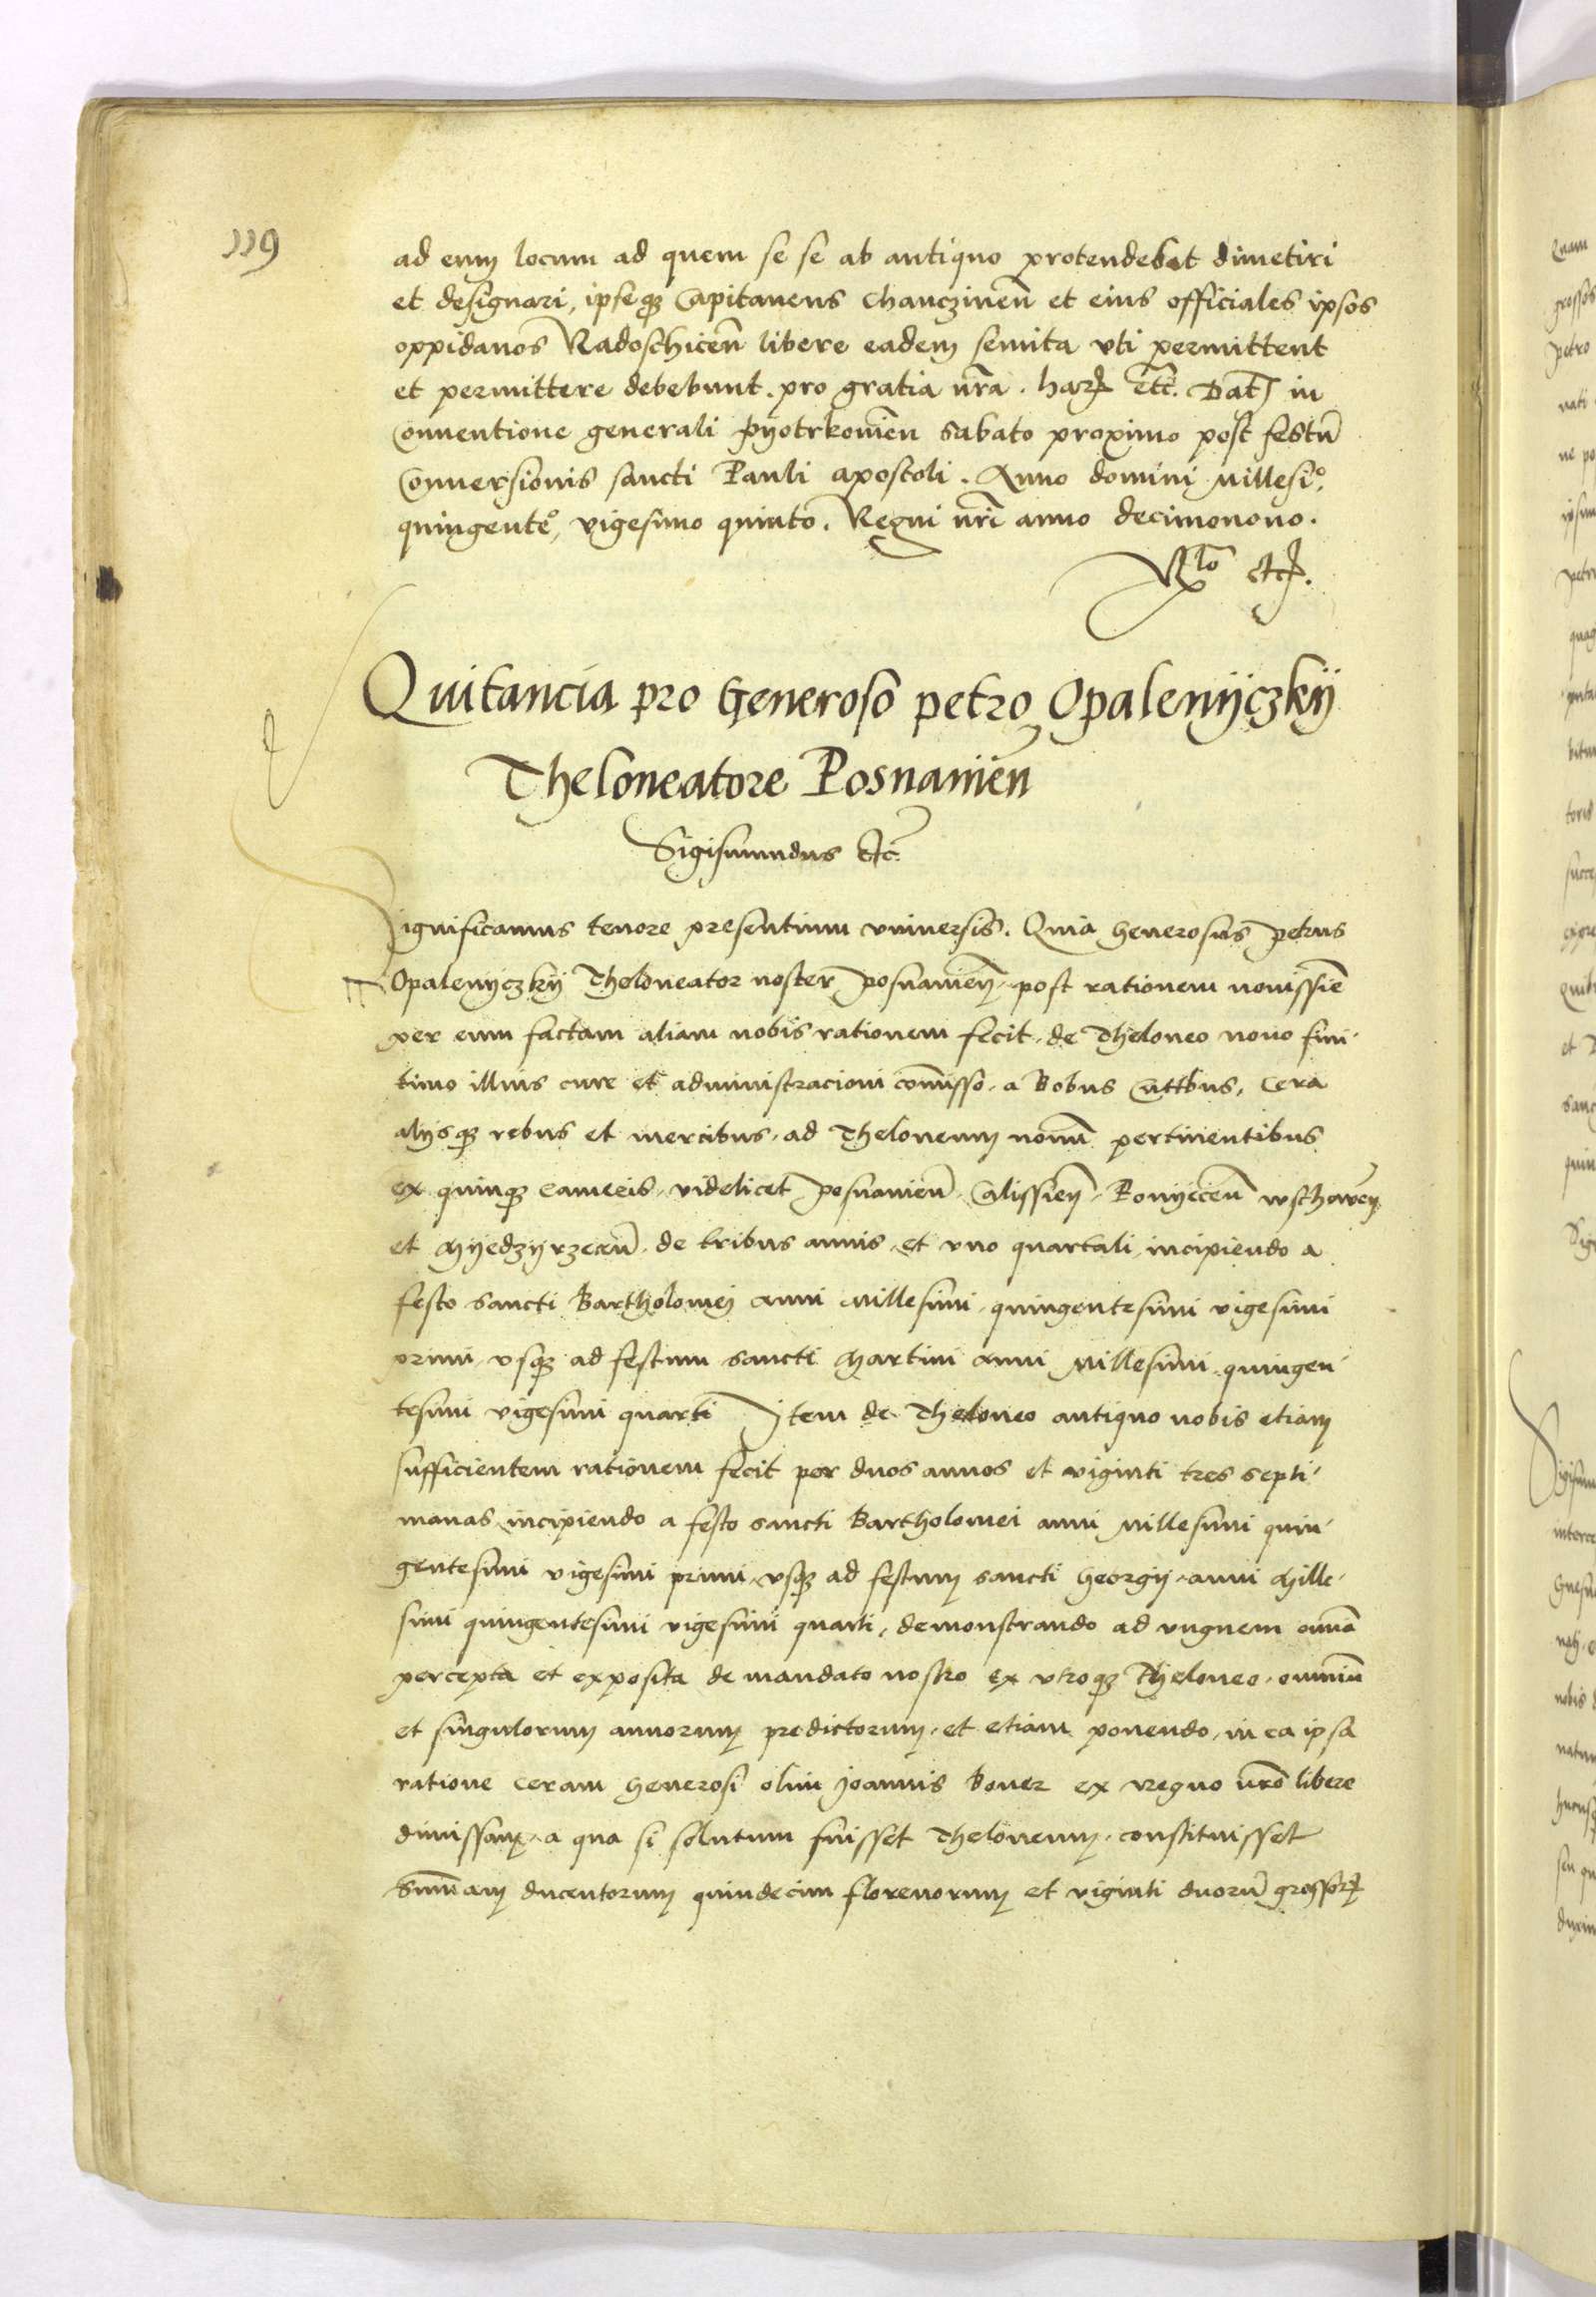 119
ad eum locum ad quem se se ab antiquo protendebat dimetiri
et designari, ipseqȝ Capitaneus Chanczineñ et eius officiales ipsos
oppidanos Radoschiceñ libere eadem semita vti permittent
et permittere debebunt. pro gratia nr̃a. har etc̃. Dat in
Conuentione generali Pyotrkowieñ Sabato proximo post festũ
Conuersionis sancti Pauli apostoli. Anno domini Millesiᵒ,
quingenteᵒ, vigesimo quinto. Regni nr̃i anno decimonono.
Rlo etc.
Quitancia pro Generoso petro Opalenyczky
Theloneatore Posnanieñ
Sigismundus etc̃
Significamus tenore presentium vniuersis. Quia Generosus petrus
Opalenyczky Theloneator noster posnanieñ, post rationem nouissiẽ
per eum factam aliam nobis rationem fecit, de Theloneo nouo fini-
timo illius cure et administracioni com̃isso, a Bobus Cuttbus, Cera
alysqȝ rebus et mercibus, ad Theloneum nouũ pertinentibus
ex quinqȝ cameris, videlicet posnanieñ, Calissieñ, Konyceñ wschoweñ
et Myedzyrzeceñ, de tribus annis, et vno quartali, incipiendo a
festo sancti Bartholomei anni Millesimi, quingentesimi vigesimi
primi, vsqȝ ad festum sancti Martini anni Millesimi quingen-
tesimi vigesimi quarti Item de Theloneo antiquo nobis etiam
sufficientem rationem fecit per duos annos et viginti tres septi-
manas, incipiendo a festo sancti Bartholomei anni Millesimi quin-
gentesimi vigesimi primi, vsqȝ ad festum sancti Georgy, anni Mille-
simi quingentesimi vigesimi quarti, demonstrando ad vnguem om̃ia
percepta et exposita de mandato nostro ex vtroqȝ Theloneo, omniũ
et singulorum annorum predictorum, et etiam ponendo, in ea ipsa
ratione ceram Generosi olim Joannis Boner ex regno nr̃o libere
dimissam, a qua si solutum fuisset Theloneum, constituisset
Sum̃am ducentorum quindecim florenorum et viginti duorũ grossorꝝ